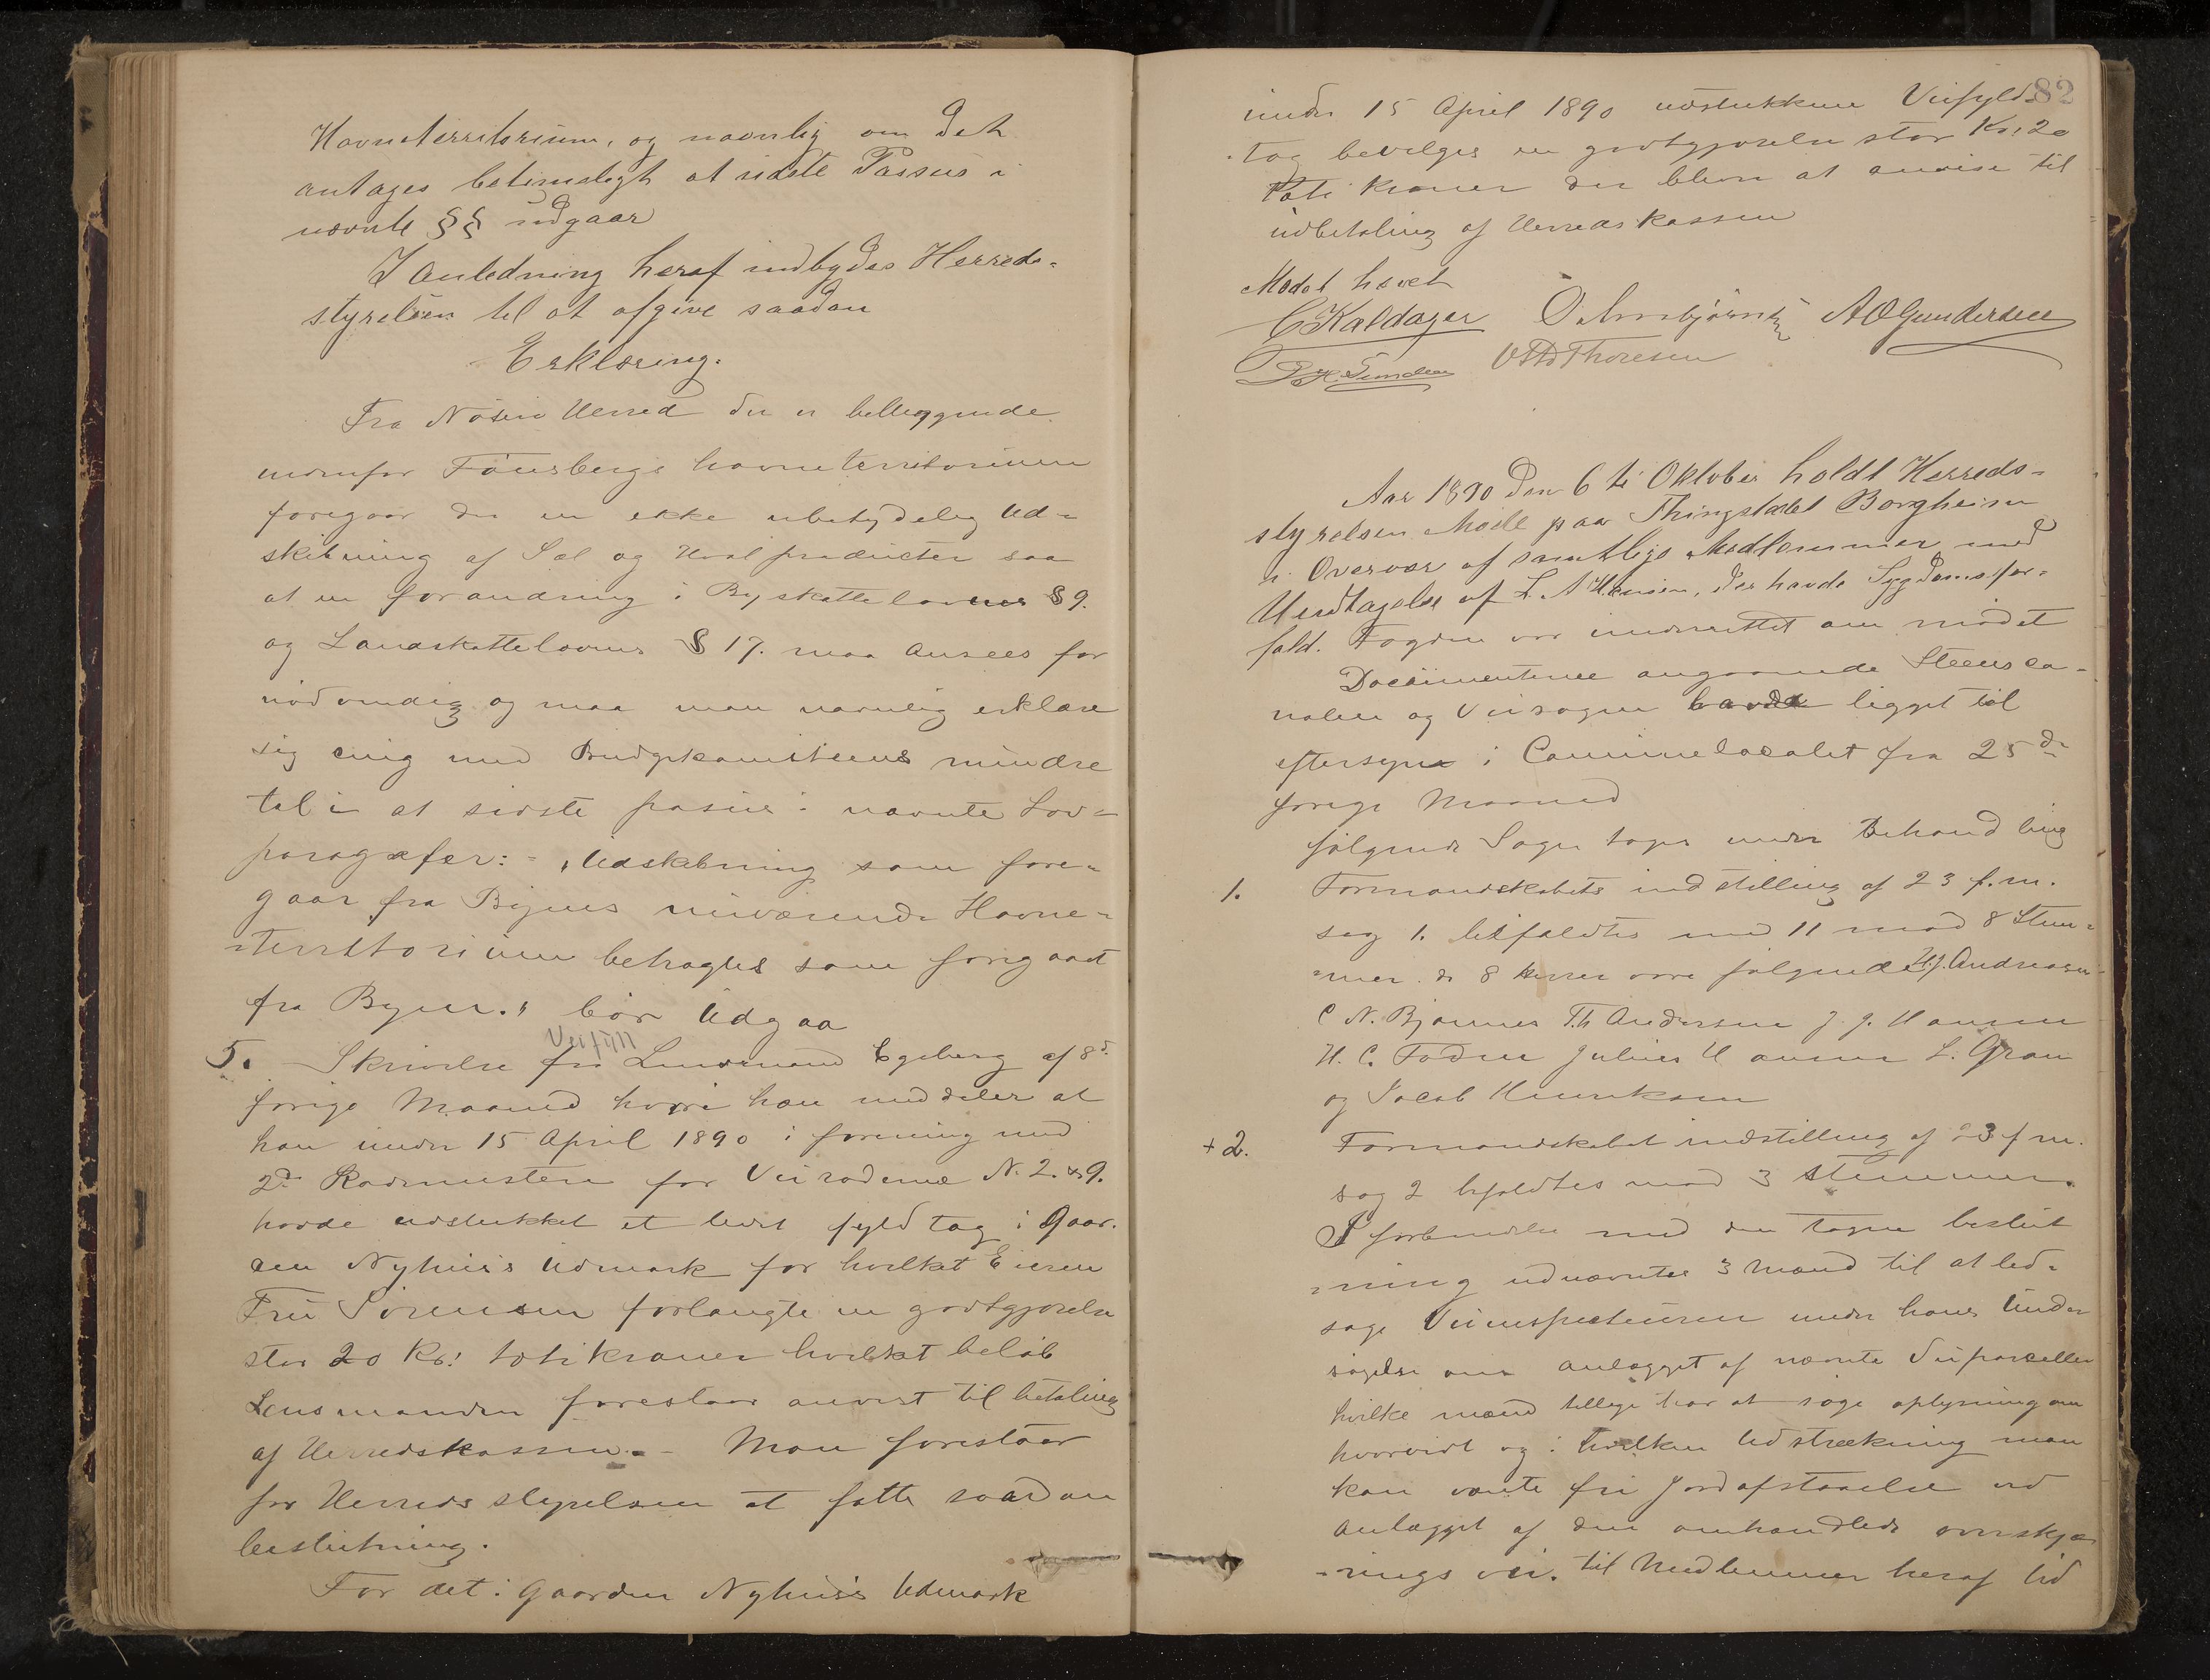 Havneterritorium, og navnlig om det
antages betimeligt at sidste Passus i
nævnte §§ udgaar
I Anledning heraf indbydes Herreds-
styrelsen til at afgive saadan
Erklæring.
Fra Nøterø Herred der er belliggende
indenfor Tønsbergs havneterritorium
foregaar der en ikke ubetydelig Ud-
skibning af Sæl og Hvalproducter saa
at en forandring i Byskattelovens § 9.
og Landskattelovens § 17. maa ansees for
nødvendig og maa man navnlig erklære
sig enig med Budgetkomiteens mindre
tal i at sidste passus i nævnte Lov-
paragrafer: - "Udskibning som fore-
gaar fra Byens nuværende Havne-
-Territorium betragtes som foregaaet
fra Byen." bør Udgaa
Veifyll
5. Skrivelse fra Lensmand Egeberg af 8d
forrige Maaned hvori han meddeler at
han under 15 April 1890 i forening med
2de Rodemestere for Veiroderne N. 2. & 9.
havde udstukket et leiet fyldtag i Gaar-
den Nyhuus Udmark for hvilket Eieren
Fru Sørensen forlangte en godtgjørelse
stor 20 Kr: totikroner hvilket beløb
Lensmanden foreslaar anvist til betaling
af Herredskassen. - Man foreslaar
for Herredsstyrelsen at fatte saadan
beslutning.
For det i Gaarden Nyhuus Udmark
82
under 15 April 1890 udstukkne Veifyld-
tag bevilges en godtgjørelse stor Kr. 20
toti kroner der blive at anvise til
udbetaling af Herredskassen
Mødet hævet
C Kaldager O Arnbjørnsen A O Gundersen
Otto Thoresen
Aar 1890 den 6te Oktober holdt Herreds-
styrelsen Møde paa Thingstedet Borgheim
i Overvær af samtlige Medlemmer med
Undtagelse af L. A. Hansen, der havde Sygdomsfor-
fald. Fogden var underrettet om mødet
Documenterne angaaende Steensca-
nalen og Veisagen havde ligget til
eftersyn i Communelocalet fra 25de
forrige Maaned
følgende Sager toges under Behandling
1. Formandskabets indstilling af 23 f.m.
sag 1. bifaldtes med 11 mod 8 Stem-
mer. de 8 herrer vare følgende H.J. Andreasen
C N. Bjønnes Th. Andersen J. J. Hansen
H. C. Fodne Julius Hansen L. Gran
og Jacob Henriksen
+ 2. Formandskabet indstilling af 23 f m.
sag 2 bifaldtes mod 3 stemmer.
I forbindelse med den tagne beslut
-ning udnævntes 3 Mænd til at led-
sage Veiinspecteuren under hans Under
søgelse om anlægget af nævnte Veiparceller
hvilke mænd tillige har at søge oplysning om
hvorvidt og i hvilken Udstrækning man
kan vente fri Jordafstaaelse ved
anlægget af den omhandlede overskjæ
-rings vei. til Medlemmer heraf Ud